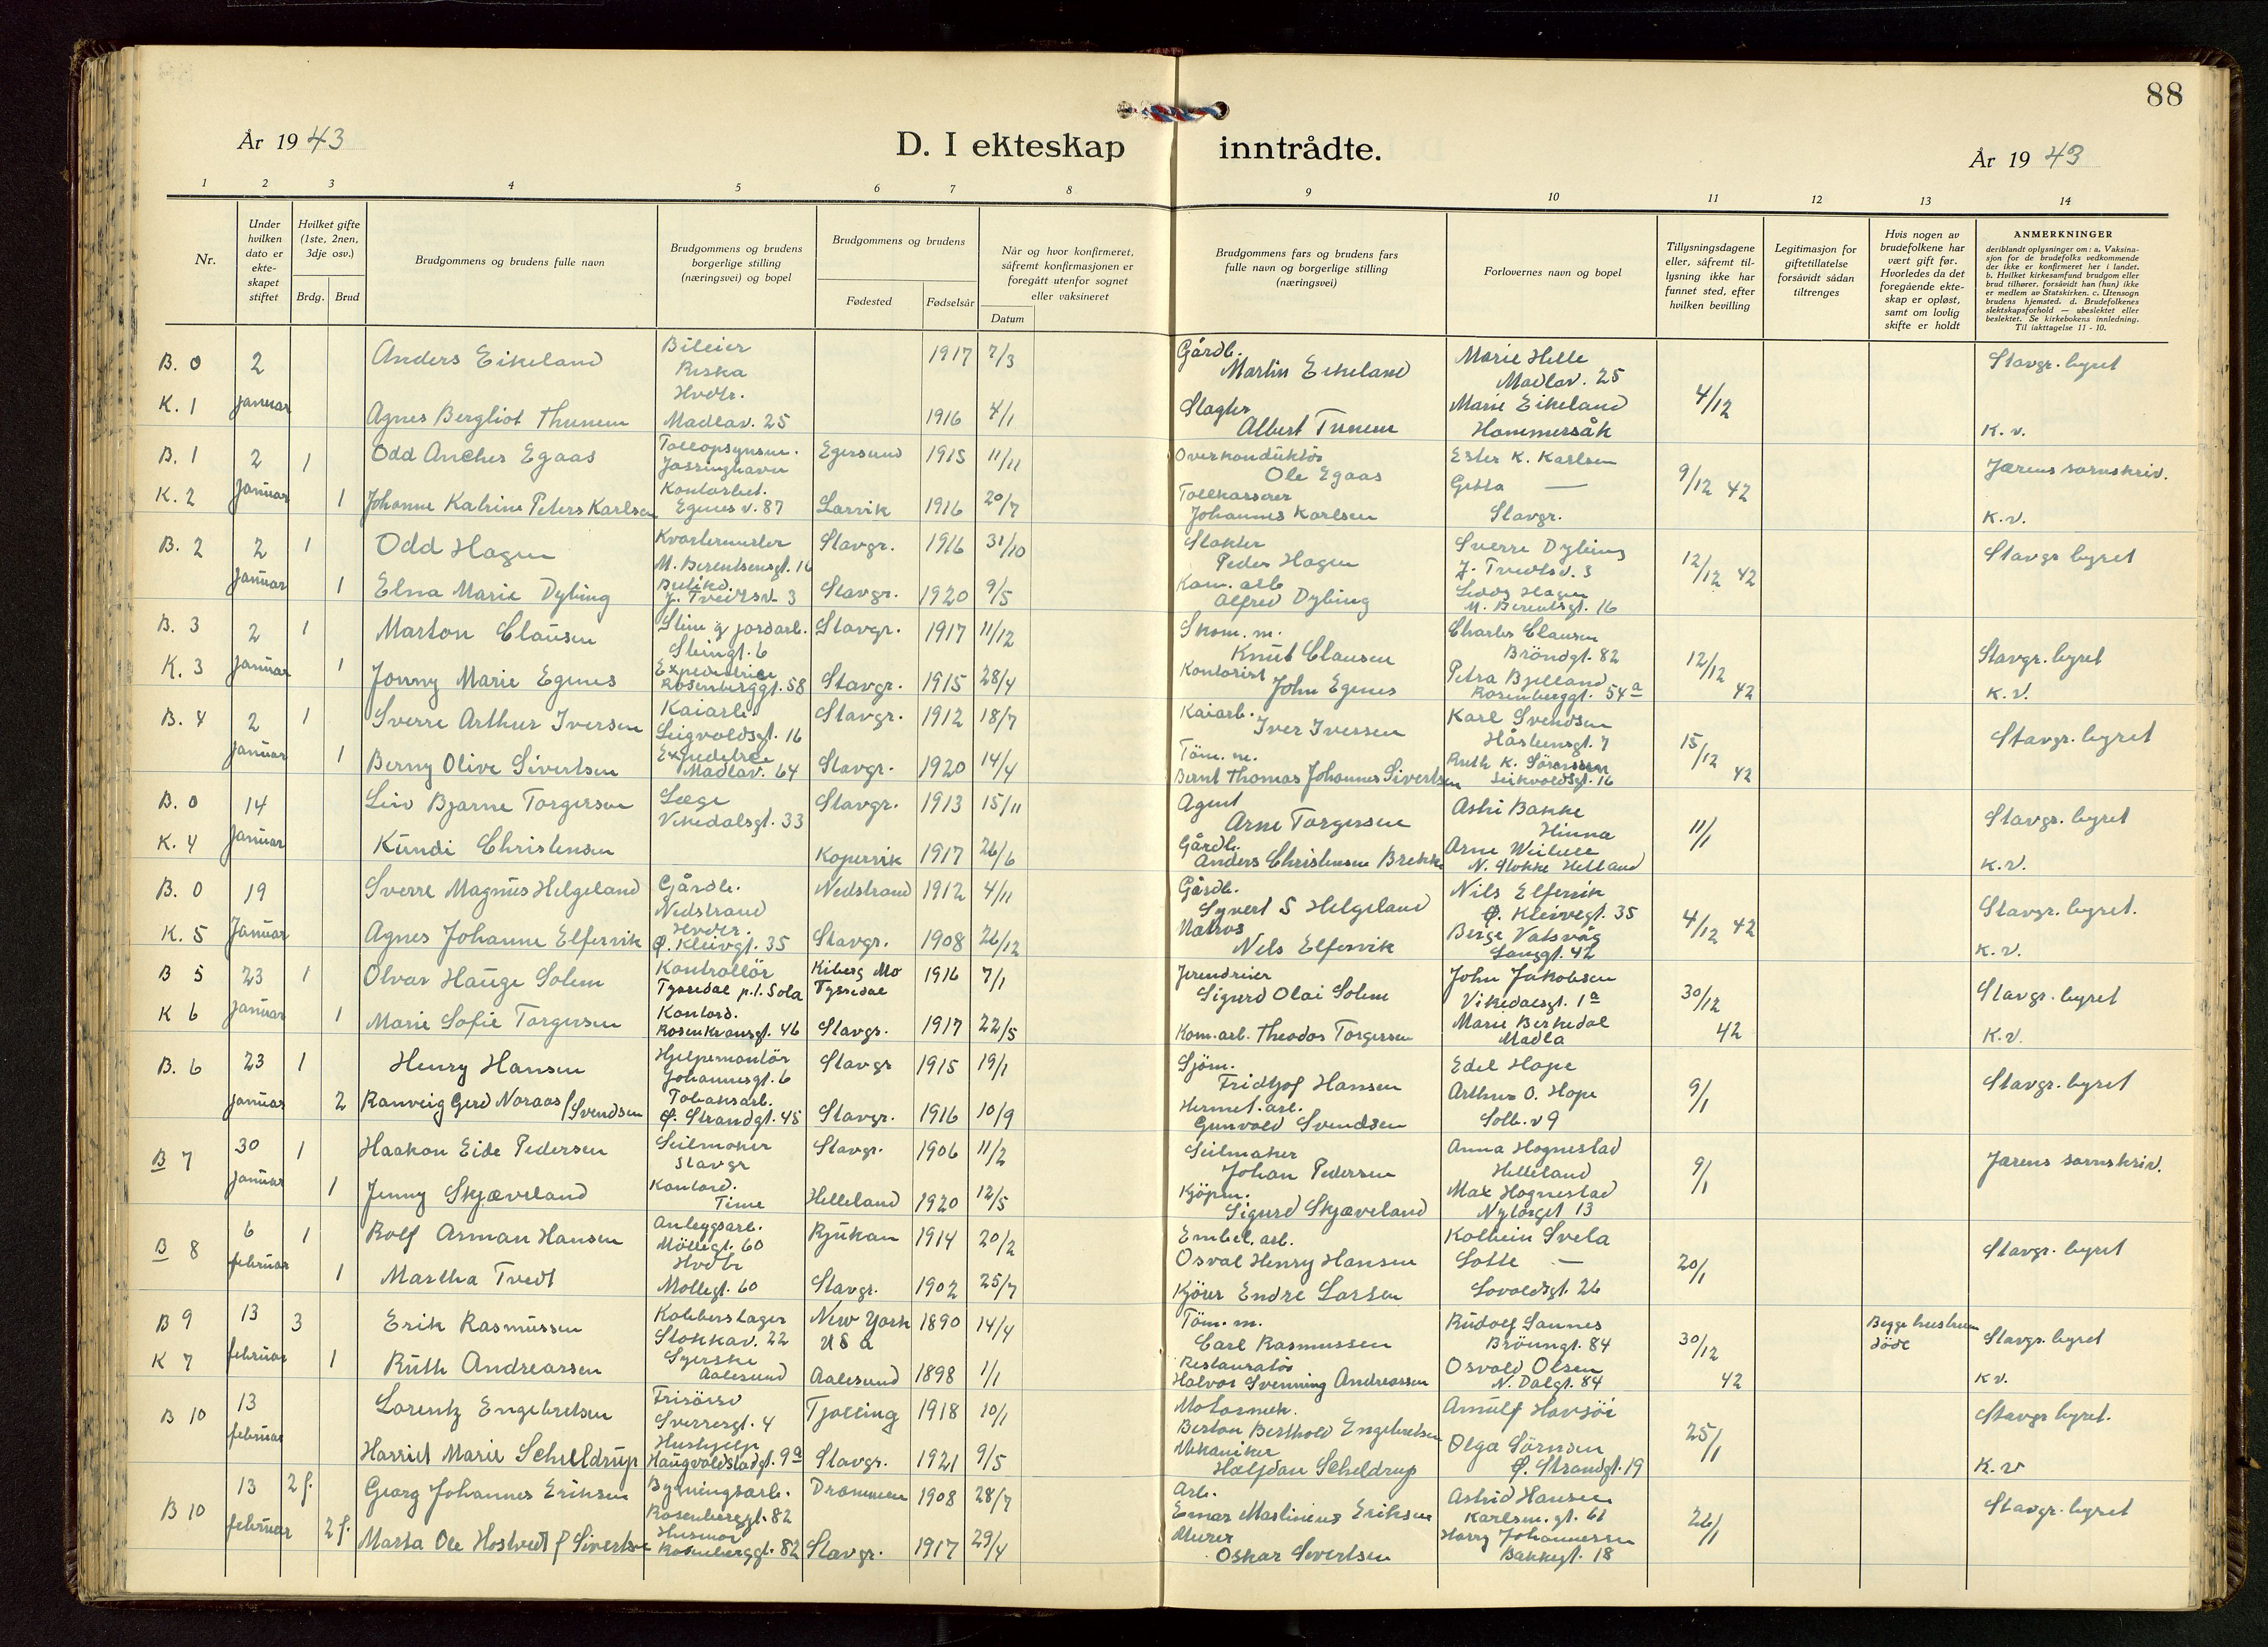 88
År 19 43
D. I ekteskap inntrådte.
År 19 43
1 2 3 4 5 6 7 8 9 10 11 12 13 14
Nr.
Under hvilken dato er ekte-skapet stiftet
Hvilket gifte (1ste, 2nen, 3dje osv.)
Brdg. Brud
Brudgommens og brudens fulle navn
Brudgommens og brudens borgerlige stilling (næringsvei) og bopel
Brudgommens og brudens
Fødested Fødselsår
Når og hvor konfirmeret, såfremt konfirmasjonen er foregått utenfor sognet eller vaksineret
Datum
Brudgommens fars og brudens fars fulle navn og borgerlige stilling (næringsvei)
Forlovernes navn og bopel
Tillysningsdagene eller, såfremt til-lysning ikke har funnet sted, efter hvilken bevilling
Legitimasjon for giftetillatelse forsåvidt sådan tiltrenges
Hvis nogen av brudefolkene har vært gift før. Hvorledes da det foregående ekte-skap er opløst, samt om lovlig skifte er holdt
ANMERKNINGER
deriblandt oplysninger om: a. Vaksina-sjon for de brudefolks vedkommende der ikke er konfirmeret her i landet. b. Hvilket kirkesamfund brudgom eller brud tilhører, forsåvidt han (hun) ikke er medlem av Statskirken. c. Utensogn brudens hjemsted. d. Brudefolkenes slektskapsforhold — ubeslektet eller beslektet. Se kirkebokens innledning. Til iakttagelse 11 - 10.
B. 0 2 januar Anders Eikeland Bileier Riska 1917 7/3 Gårdb. Martin Eikeland Marie Helle Madlav. 25 4/12 Stavgr. byret
K. 1 Agnes Bergliot Thunem Hvdtr. Madlav. 25 1916 4/1 Slagter Albert Tunem Marie Eikeland Hommersåk K. v.
B. 1 2 januar 1 Odd Anches Egaas Tollopsynsm. Jøssinghavn Egersund 1915 11/11 Overkonduktör Ole Egaas Ester K. Karlsen 9/12 42 Jærens sornskriv.
K. 2 1 Johanne Katrine Peters Karlsen Kontorbet. Egnes v. 87 Larvik 1916 20/7 Tollkasserer Johannes Karlsen Gitta — Stavgr. K. v.
B. 2 2 januar 1 Odd Hagen Kvartermester M. Berentsensgt. 16 Stavgr. 1916 31/10 Slakter Peder Hagen Sverre Dybing J. Tvedtsv. 3 12/12 42 Stavgr byret
1 Elna Marie Dybing Butikd. J. Tvedtsv. 3 Stavgr. 1920 9/5 Kom. arb Alfred Dybing Hagen M. Berentsgt. 16
B. 3 2 januar 1 Marton Clausen Stein g jordarb. Steingt. 6 Stavgr. 1917 11/12 Skom. m. Knut Clausen Charles Clausen Bröndgt. 82 12/12 42 Stavgr. byret
K. 3 1 Jonny Marie Egenes Expeditrice Rosenberggt. 58 Stavgr. 1915 28/4 Kontorist John Egenes Petra Bjelland Rosenberggt. 54a K. V.
B. 4 2 januar 1 Sverre Arthur Iversen Kaiarb. Seigvoldsgt. 16 Stavgr. 1912 18/7 Kaiarb. Iver Iversen Karl Svendsen Håsteinsgt. 7 15/12 42 Stavgr. byret
1 Berny Olive Sivertsen Madlav. 64 Stavgr. 1920 14/4 Töm. m. Bernt Thomas Johannes Sivertsen Ruth K. Sörensen 16
B. 0 14 januar Leiv Bjarne Torgersen Læge Vikedalsgt. 33 Stavgr. 1913 15/11 Agent Arne Torgersen Astri Bakke Hinna 11/1 Stavgr. byret
K. 4 Kundi Christensen Kopervik 1917 26/6 Gårdb. Anders Christensen Brekke Arne N. Stokke Helland K. V.
B. 0 19 Januar Sverre Magnus Helgeland Gårdb. Nedstrand Nedstrand 1912 4/11 Gårdb. Syvert S Helgeland Nils Elfervik Ø. Kleivegt. 35 4/12 42 Stavgr. byret.
K. 5 Agnes Johanne Elfervik Hvdtr. Ø. Kleivgt. 35 Stavgr. 1908 26/12 Matros Nels Elfervik Berge Vatsvåg Langgt. 42 K. V.
B 5 23 januar 1 Olvar Hauge Solem Kontrollör Tyssedal p.t. Sola Kiberg Mo Tyssedal 1916 7/1 Sigurd Olai Solem John Jakobsen Vikedalsgt. 1a 30/12 42 Stavgr. byret
K 6 1 Marie Sofie Torgersen Kontord. Rosenkransgt. 46 Stavgr. 1917 22/5 Kom. arb. Theodor Torgersen Marie Berkedal Madla K. V.
B. 6 23 januar 1 Henry Hansen Hjelpemontör Johannesgt. 6 Stavgr 1915 19/1 Sjöm. Fridtjof Hansen Edel Hope 9/1 Stavgr. byret
2 Ranveig Gerd Noraas f Svendsen Tobaksarb. Ø. Strandgt. 45 Stavgr. 1916 10/9 Hermet. arb. Gunvald Svendsen Arthur O. Hope Solb. v 9
B 7 30 januar 1 Haakon Eide Pedersen Seilmaker Stavgr Stavgr. 1906 11/2 Seilmaker Johan Pedersen Anna Hognestad Helleland 9/1 Jærens sornskriv.
1 Jenny Skjæveland Kontord. Time Helleland 1920 12/5 Kjöpm. Sigurd Skjæveland Max Hognestad Nytorget 13
B 8 6 februar 1 Rolf Arman Hansen Anleggsarb. Möllegt. 60 Rjukan 1914 20/2 Embal. arb. Osval Henry Hansen Kolbein Svela 20/1 Stavgr. byret
1 Martha Tvedt Hvdtr Mollegt. 60 Stavgr. 1902 25/7 Kjörer Endre Larsen Lotte — Lovoldsgt. 26
B 9 13 februar 3 Erik Rasmussen Kobberslager Stokkav. 22 New York USA 1890 14/4 Töm. m. Carl Rasmussen Rudolf Sannes Bröungt. 84 30/12 42 Begge hustruer döde Stavgr. byret
K 7 1 Ruth Andreassen Syerske Aalesund Aalesund 1898 1/1 Restauratör Halvor Svenning Andreassen Osvald Olsen N. Dalgt. 84 K V.
B 10 13 februar Lorentz Engebretsen Frisörsv Sverresgt. 4 Tjølling 1918 10/1 Motormek. Berton Berthold Engebretsen Arnulf Havsöi 25/1 Stavgr byret.
Harriet Marie Schelldrup Hushjelp Haugvaldstadgt. 9a Stavgr. 1921 9/5 Mekaniker Halfdan Scheldrup Olga Sörnsen Ø. Strandgt. 19 K. V
B 10 13 februar 2 f. Georg Johannes Eriksen Bygningsarb. Rosenberggt. 82 Drammen 1908 28/7 Arb. Einar Martinius Eriksen Astrid Hansen Karlsm. gt. 61 26/1 Stavgr. byret
2 f. Marta Ole Hostvedt f Sivertsen Husmor Rosenberggt. 82 Stavgr. 1917 29/4 Murer Oskar Sivertsen Harry Johannessen Bakkegt. 18